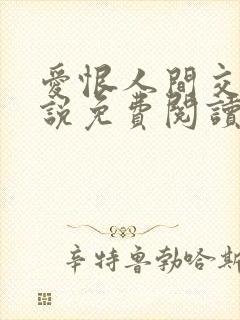 愛恨人間交
說免費閱讀
辛特魯勃哈斯